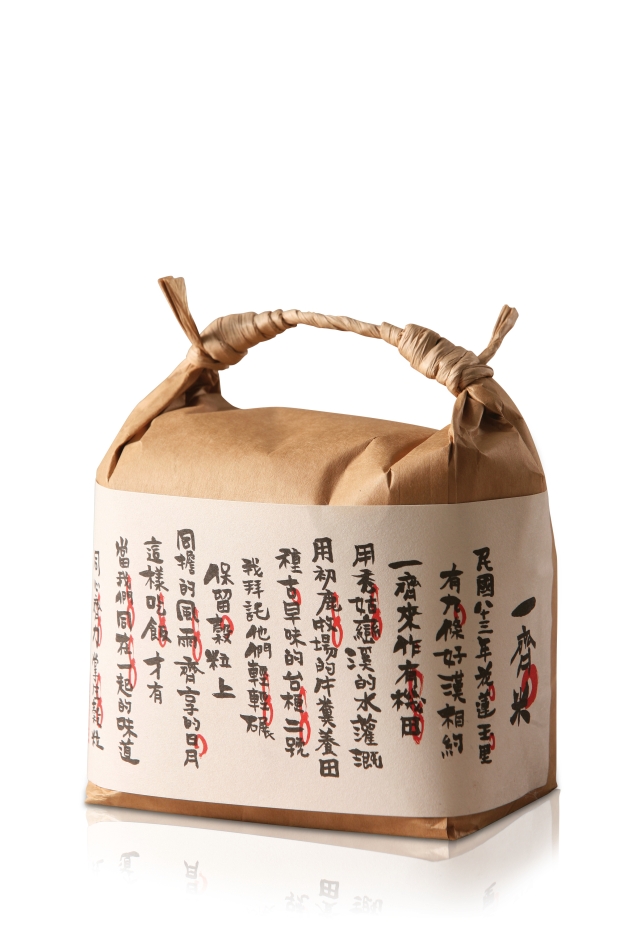 一齊米
民國八三年花蓮玉里
有九條好漢相約
一齊來作有機田
用秀姑巒溪的水灌溉
用初鹿牧場的牛糞養田
種古早味的台梗二號
我拜託他們輕輕碾
保留穀粒上
同擔的風雨齊享的日月
這樣吃飯才有
當我們同在一起的味道
同心齊力